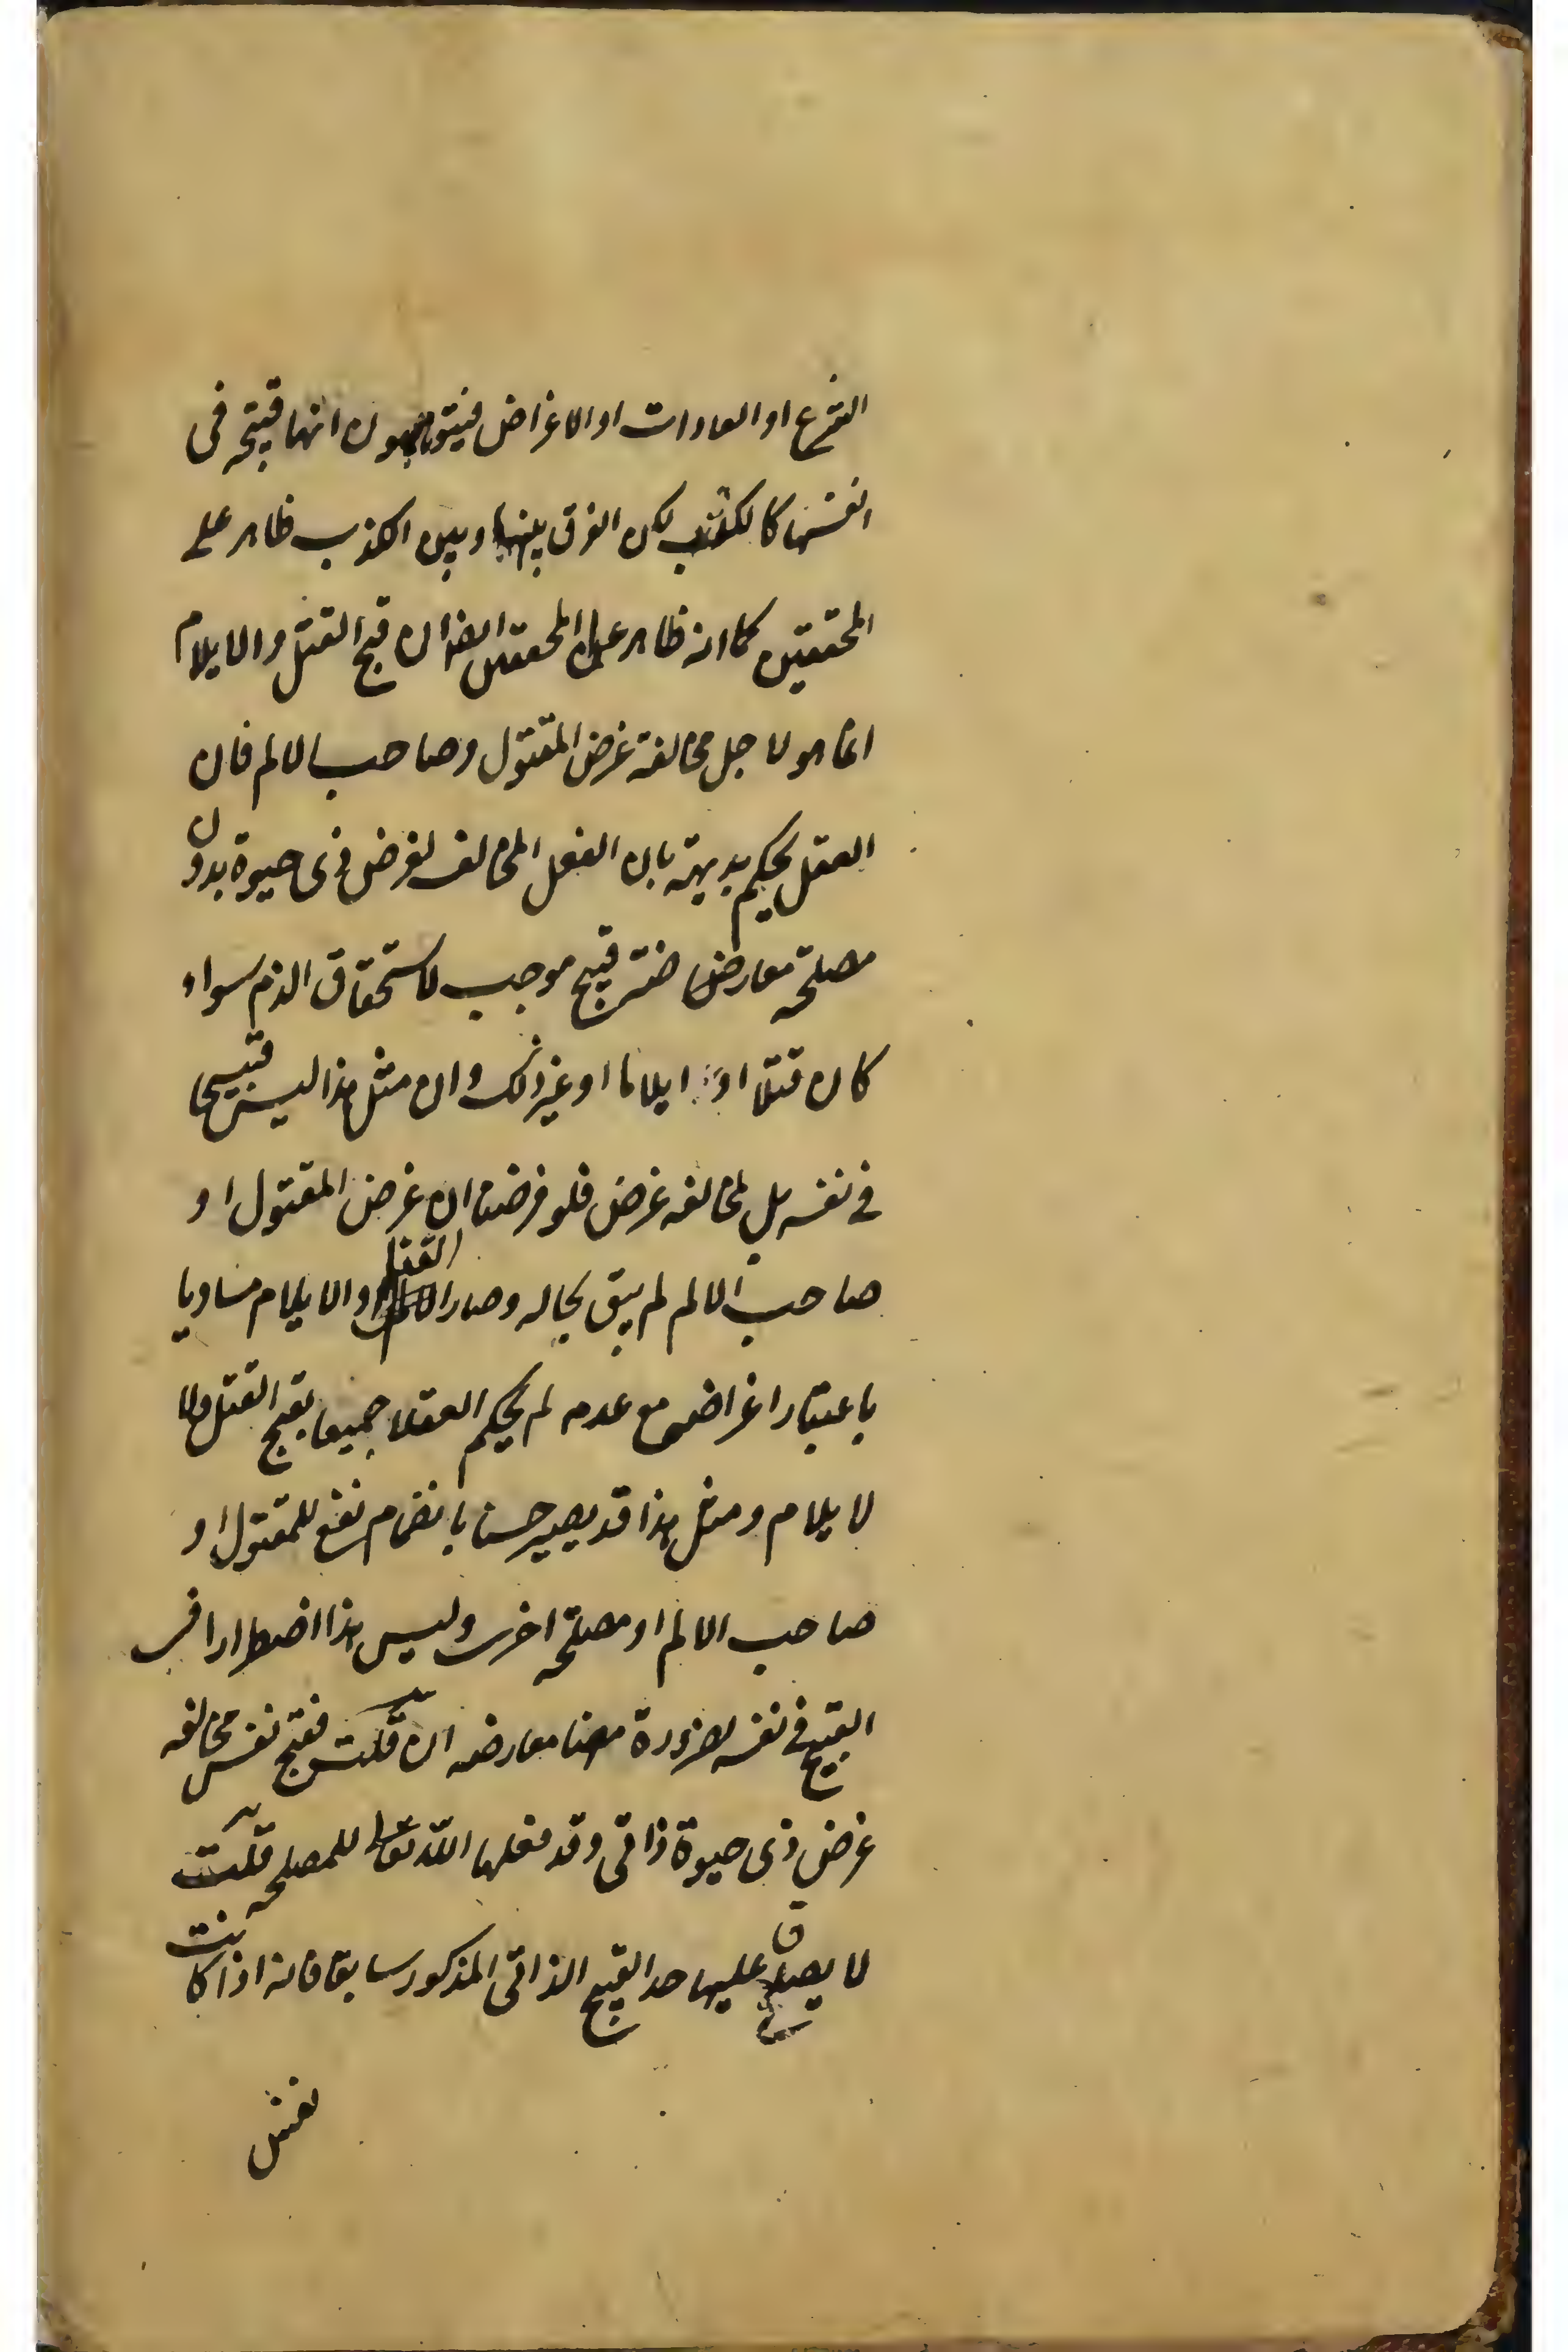 الشرع او العادات او الاغراض فيتوهمون انها قبيحة فى
انفسها كالكذب لكن الفرق بينها وبين الكذب ظاهر على
المحققين كما انه ظاهر على المحققين ايضا ان قبح القتل والايلام
انما هو لاجل مخالفة غرض المقتول وصاحب الالم فان
العقل يحكم بديهة بان الفعل المخالف لغرض ذى حيوة بدون
مصلحة معارضة قبيح موجب لاستحقاق الذم سواء
كان قتلا او ايلاما او غير ذلك وان مثل هذا ليس قبيحا
فى نفسه بل لمخالفة غرض فلو فرضنا ان غرض المقتول او
صاحب الالم لم يبق بحاله وصار القتل والايلام مساويا
باعتبار اغراضهم مع عدمه لم يحكم العقلا جميعا بقبح القتل ولا
لايلام ومثل هذا قد يصير حسنا بانضمام نفع للمقتول او
صاحب الالم او مصلحة اخرى وليس هذا اضطرارا فى
القبيح فى نفسه لضرورة معارضه ان قلت فقبح نفس مخالفه
غرض ذى حيوة ذاتى وقد فعلها الله تعا للمصلحه قلت
لا يصدق عليها حد القبيح الذاتى المذكور سابقا فانه اذا كانت